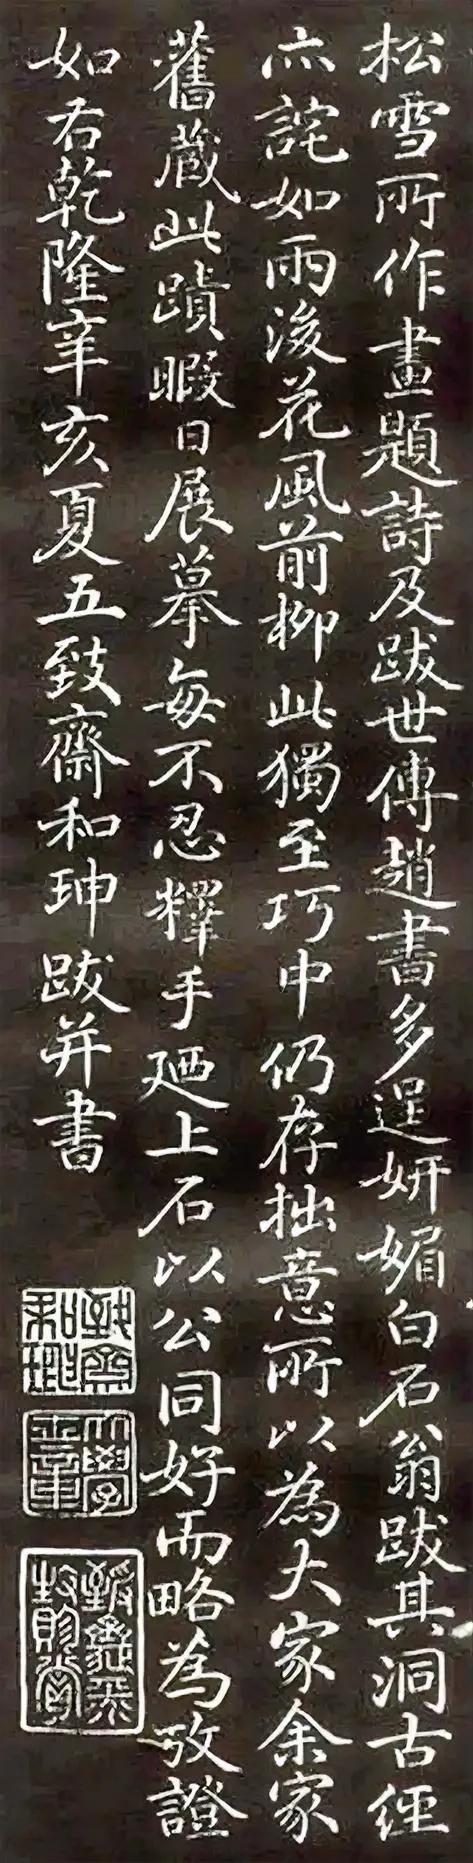 松雪所作畫題詩及跋世傳趙書多逞妍媚白石翁跋其洞古經
亦詫如雨後花風前柳此獨至巧中仍存拙意所以為大家余家
舊蔵此蹟暇日展摹每不忍釋手廼上石以公同好而略為攷證
如右乾隆辛亥夏五致齋和珅跋并書
致齋和珅
大學士章